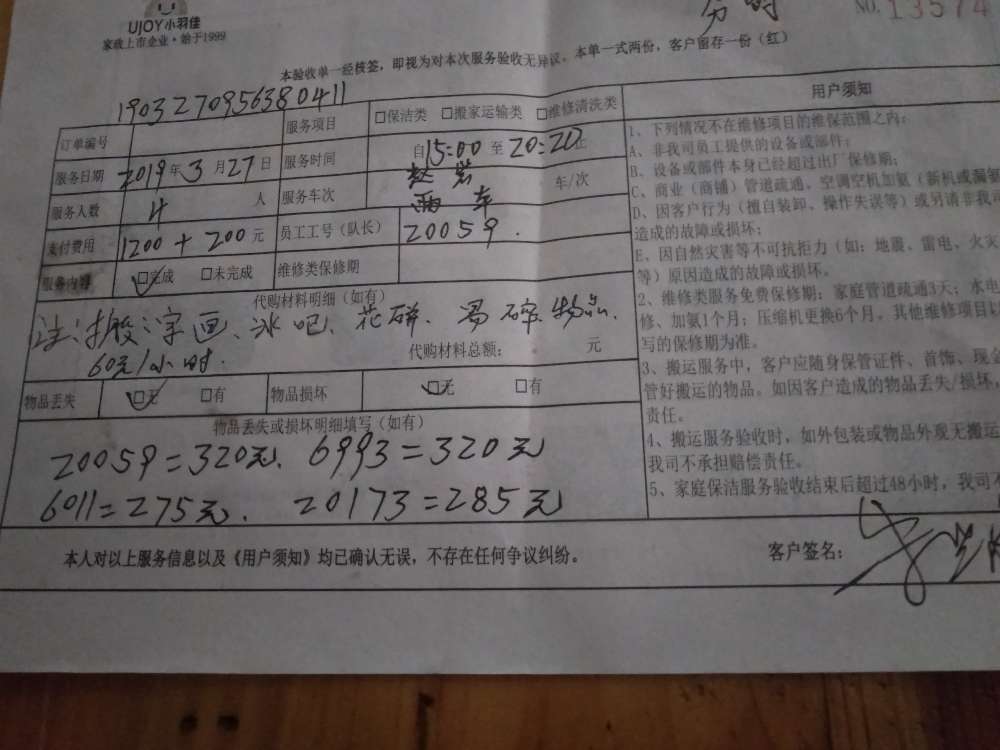 UJOY小羽佳
家政上市企业·始于1999
分时
NO.13574
本验收单一经核签，即视为对本次服务验收无异议。本单一式两份，客户留存一份（红）
订单编号 1903270956380411 服务项目 □保洁类 □搬家运输类 □维修清洗类
服务日期 2019年3月27日 服务时间 自15:00至20:20止
服务人数 4人 服务车次 两车 车/次
支付费用 1200+200元 员工工号（队长） 20059.
服务内容 □完成 □未完成 维修类保修期
代购材料明细（如有）
注:搬字画、冰吧、花瓶、易碎物品.
60元/小时.
代购材料总额： 元
物品丢失 □无 □有 物品损坏 □无 □有
物品丢失或损坏明细填写（如有）
20059=320元. 6993=320元
6011=275元. 20173=285元
用户须知
1、下列情况不在维修项目的维保范围之内：
A、非我司员工提供的设备或部件；
B、设备或部件本身已经超过出厂保修期；
C、商业（商铺）管道疏通，空调空机加氨（新机或漏氨
D、因客户行为（擅自装卸、操作失误等）或另请非我司
造成的故障或损坏；
E、因自然灾害等不可抗拒力（如：地震、雷电、火灾
等）原因造成的故障或损坏。
2、维修类服务免费保修期：家庭管道疏通3天；水电
修、加氨1个月；压缩机更换6个月，其他维修项目以
写的保修期为准。
3、搬运服务中，客户应随身保管证件、首饰、现金
管好搬运的物品。如因客户造成的物品丢失/损坏，
责任。
4、搬运服务验收时，如外包装或物品外观无搬运
我司不承担赔偿责任。
5、家庭保洁服务验收结束后超过48小时，我司不
本人对以上服务信息以及《用户须知》均已确认无误，不存在任何争议纠纷。
客户签名：